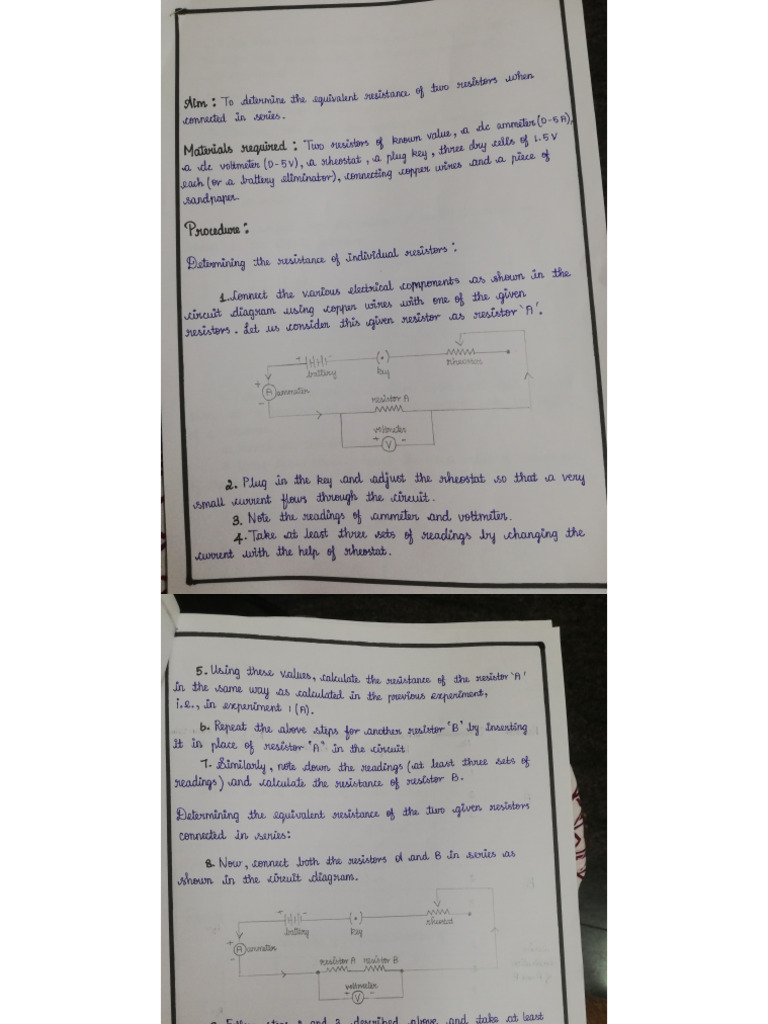 Aim : To determine the equivalent resistance of two resistors when
connected in series.
Materials required : Two resistors of known value, a dc ammeter (0-5A),
a dc voltmeter (0-5V), a rheostat, a plug key, three dry cells of 1.5V
each (or a battery eliminator), connecting copper wires and a piece of
sandpaper.
Procedure :
Determining the resistance of individual resistors :
1. Connect the various electrical components as shown in the
circuit diagram using copper wires with one of the given
resistors. Let us consider this given resistor as resistor 'A'.
+ battery - key rheostat
+ A ammeter -
resistor A
voltmeter
+ V -
2. Plug in the key and adjust the rheostat so that a very
small current flows through the circuit.
3. Note the readings of ammeter and voltmeter.
4. Take at least three sets of readings by changing the
current with the help of rheostat.
5. Using these values, calculate the resistance of the resistor 'A'
in the same way as calculated in the previous experiment,
i.e., in experiment 1 (A).
6. Repeat the above steps for another resistor "B" by inserting
it in place of resistor "A" in the circuit
7. Similarly, note down the readings (at least three sets of
readings) and calculate the resistance of resistor B.
Determining the equivalent resistance of the two given resistors
connected in series:
8. Now, connect both the resistors A and B in series as
shown in the circuit diagram.
+ battery - key
+ A ammeter -
resistor A resistor B
voltmeter
+ V -
and 3 described above and take at least